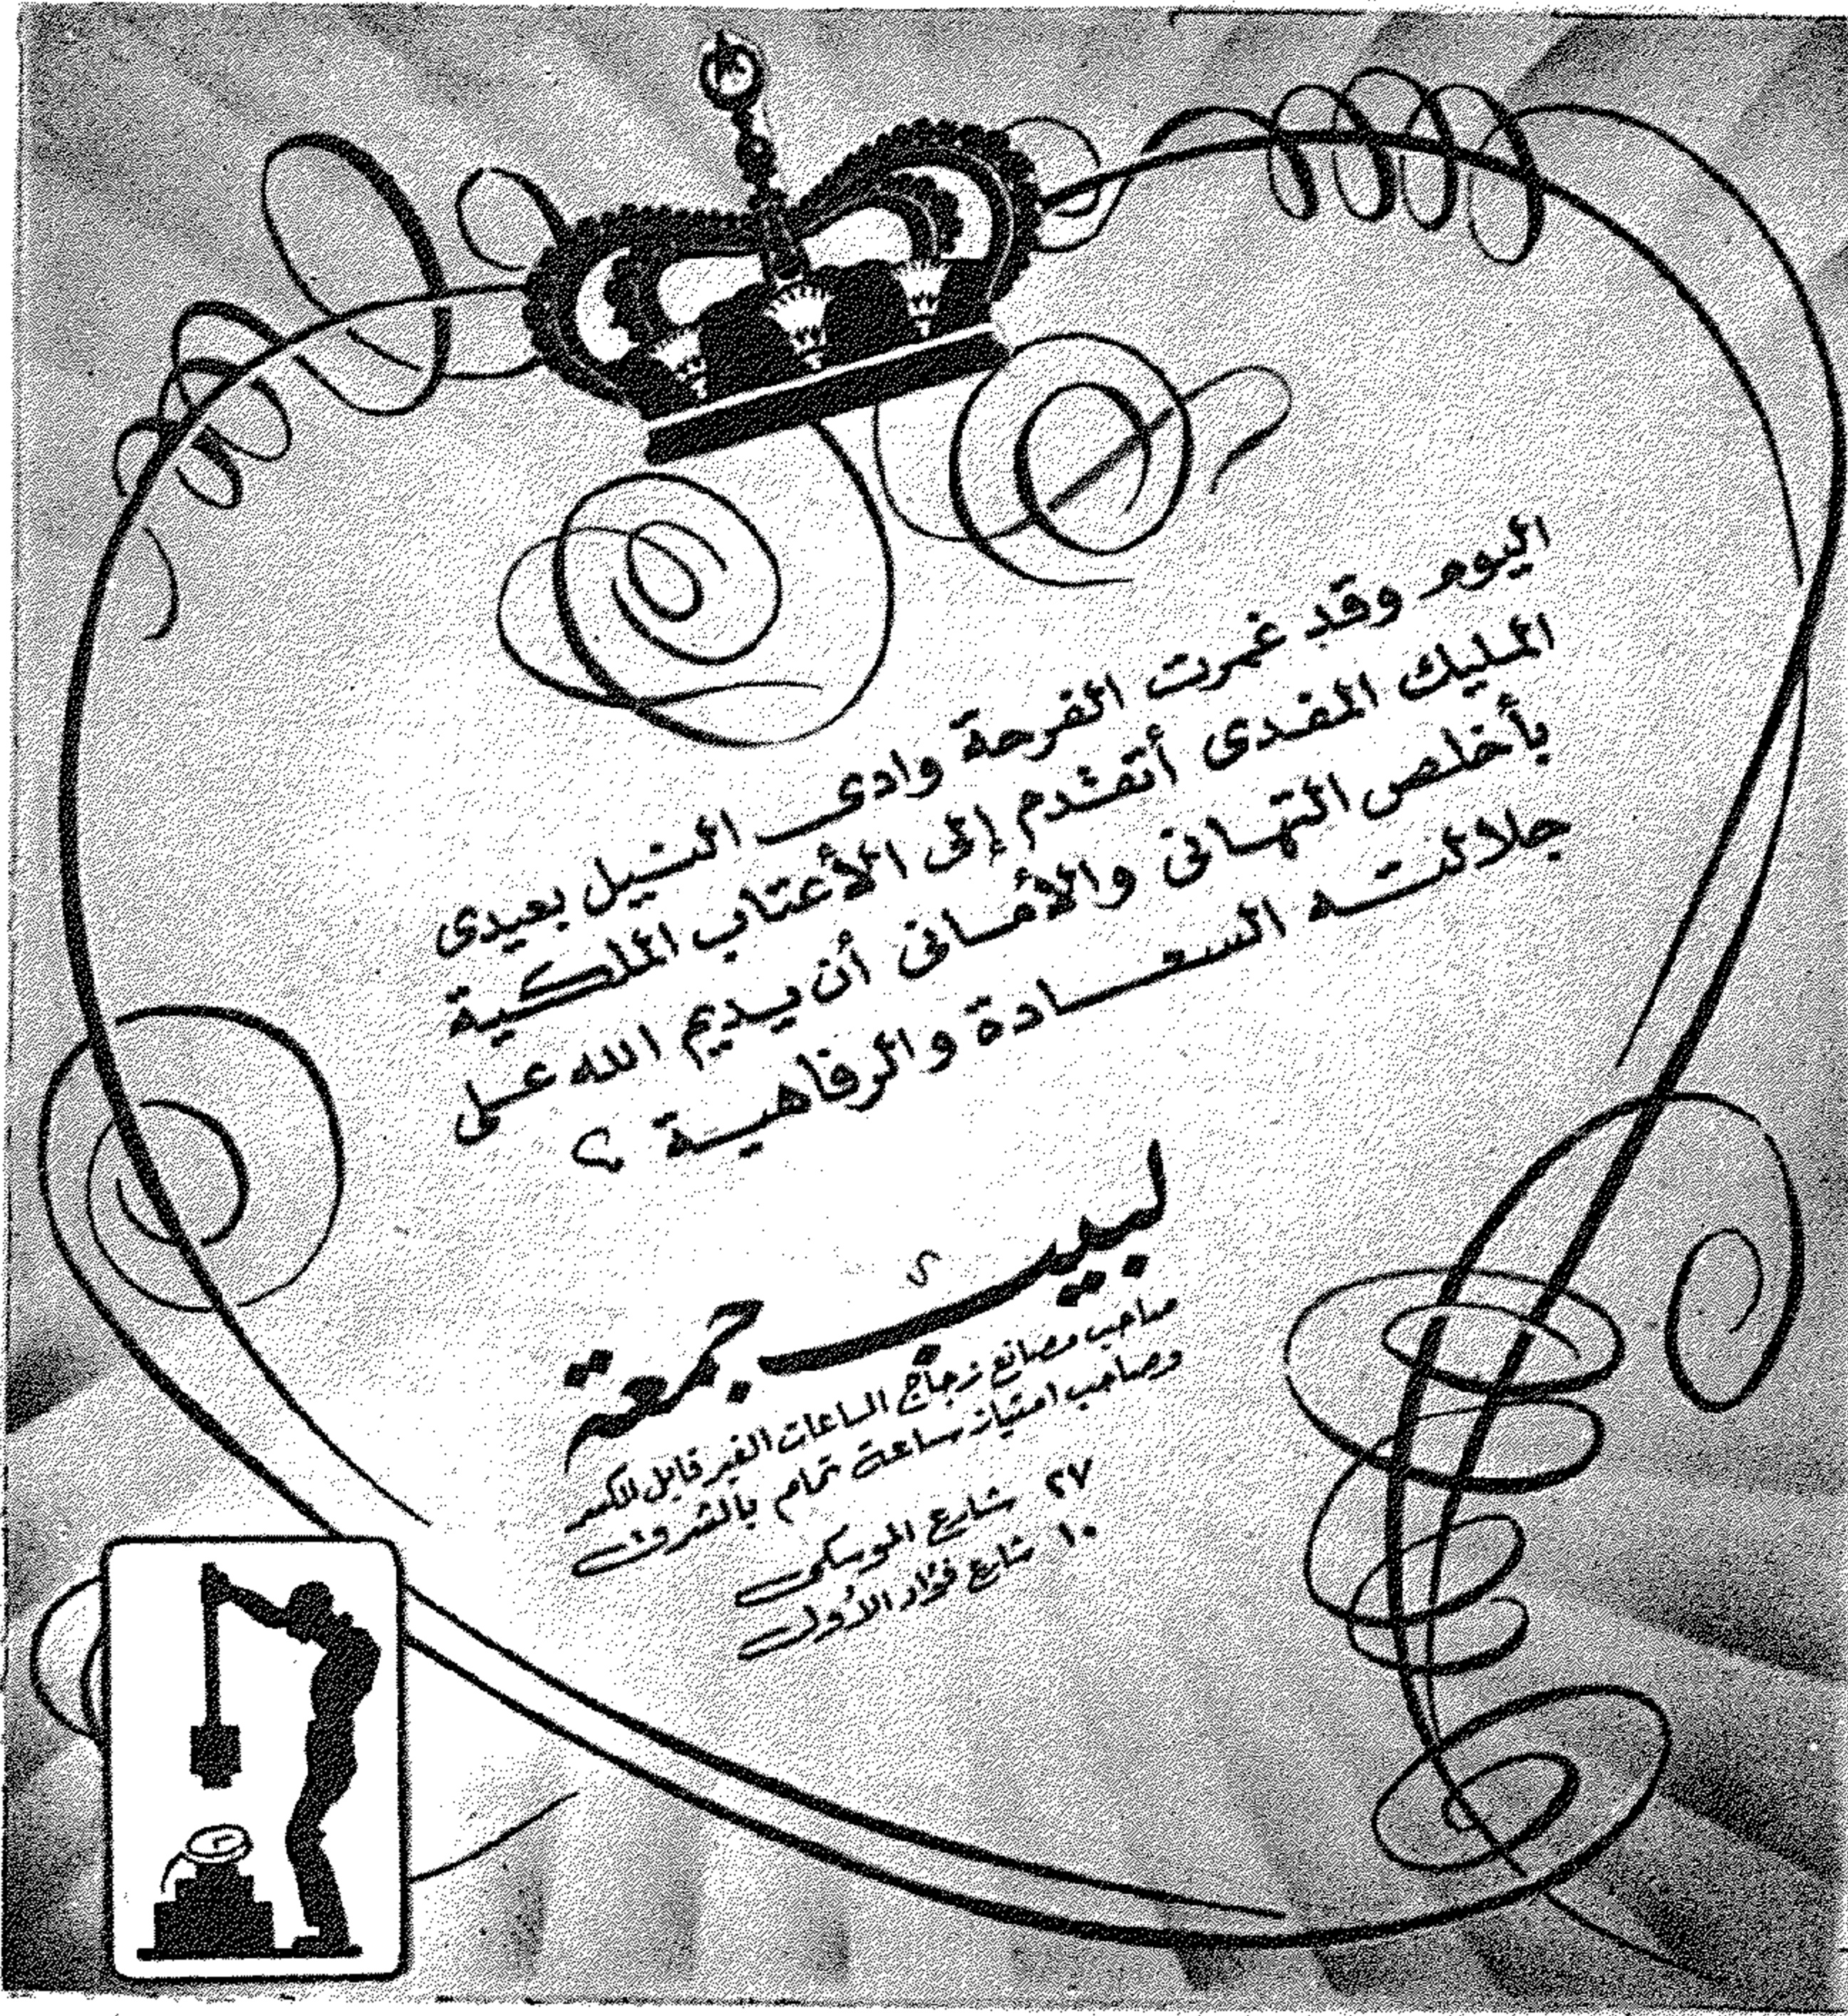 اليوم وقد غمرت الفرحة وادى النيل بعيدى
المليك المفدى أتقدم إلى الأعتاب الملكية
بأخلص التهانى والأمانى أن يديم الله على
جلالته السعادة والرفاهية ؟
لبيب جمعة
صاحب مصانع زجاج الساعات الغير قابل للكسر
وصاحب امتياز ساعة تمام بالشرق
٢٧ شارع الموسكى
١٠ شارع فؤاد الأول